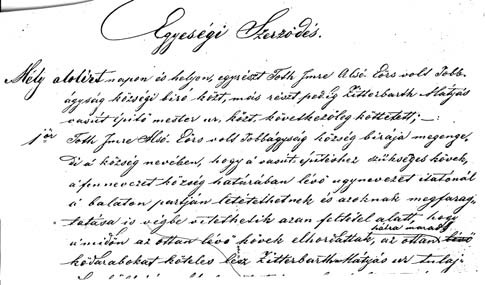 Egyeségi Szerződés.
Mely alolírt napon és helyen, egyrészt Toth Imre Alsó Eörs volt Jobb-
ágyság községi biró közt, más részt pedig Zitterbarth Mátyás
vasút építő mester ur, közt következőleg köttetett;
1ör Toth Imre Alsó Eörs volt Jobbágyság község birája megenge,
di a község nevében, hogy a vasut építéshez szükséges kövek,
a fen nevezet község határában lévő ugynevezet itatónál
a balaton partján letétethetnek és azoknak megfarag-
tatása is végbe vitethesik azan feltétel alatt, hogy
a midőn az ottan lévő kövek elhordattak, az ottan lévő
hátra maradt
kődarabokat köteles lesz Zitterbarth Mátyás ur tulaj